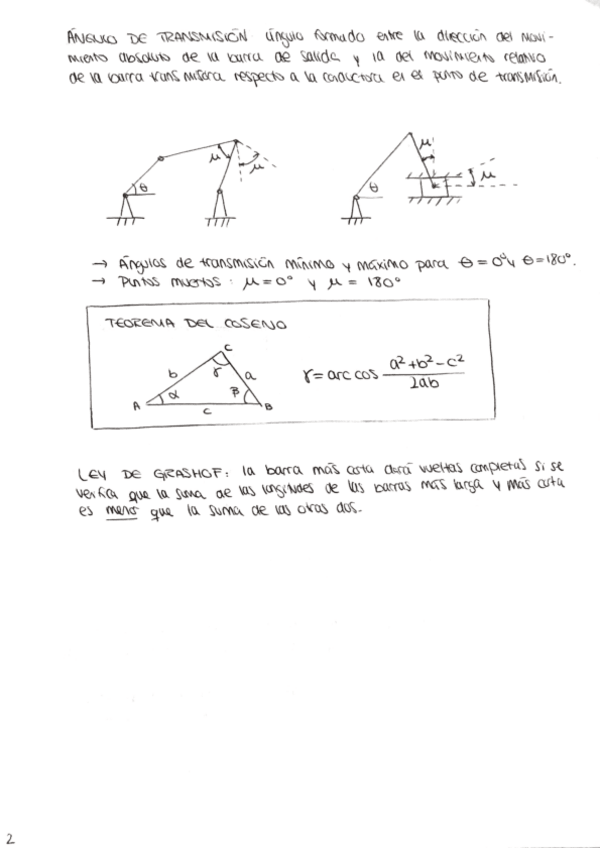 ÁNGULO DE TRANSMISIÓN ángulo formado entre la dirección del movi-
miento absoluto de la barra de salida y la del movimiento relativo
de la barra transmisora respecto a la conductora en el punto de transmisión.
μ
μ
μ
θ
θ
μ
→ Ángulos de transmisión mínimo y máximo para θ = 0° y θ = 180°.
→ Puntos muertos: μ = 0° y μ = 180°
TEOREMA DEL COSENO
C
b γ a
A α β B
c
γ = arc cos (a² + b² - c²) / 2ab
LEY DE GRASHOF: la barra más corta dará vueltas completas si se
verifica que la suma de las longitudes de las barras más larga y más corta
es menor que la suma de las otras dos.
2